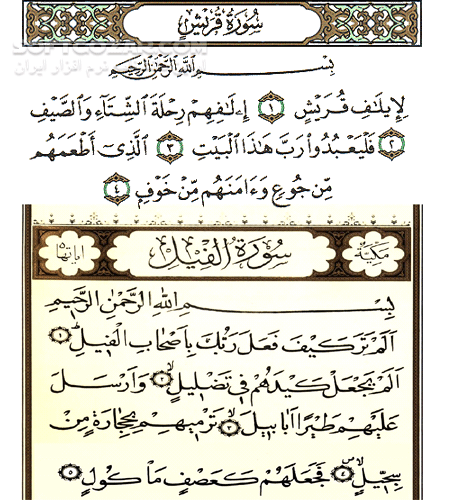 سُورَةُ قُرَيْشٍ
SOFTGOZAR.COM
نرم افزار ایران
بِسْمِ اللَّهِ الرَّحْمَٰنِ الرَّحِيمِ
لِإِيلَٰفِ قُرَيْشٍ ١ إِۦلَٰفِهِمْ رِحْلَةَ ٱلشِّتَآءِ وَٱلصَّيْفِ
٢ فَلْيَعْبُدُوا۟ رَبَّ هَٰذَا ٱلْبَيْتِ ٣ ٱلَّذِىٓ أَطْعَمَهُم
مِّن جُوعٍ وَءَامَنَهُم مِّنْ خَوْفٍۭ ٤
مَكِّيَّة سُورَةُ الْفِيلِ آيَاتُهَا ٥
بِسْمِ اللهِ الرَّحْمٰنِ الرَّحِيمِ
اَلَمْ تَرَ كَيْفَ فَعَلَ رَبُّكَ بِاَصْحَابِ الْفِيلِ ١
اَلَمْ يَجْعَلْ كَيْدَهُمْ فِي تَضْلِيلٍ ٢ وَاَرْسَلَ
عَلَيْهِمْ طَيْرًا اَبَابِيلَ ٣ تَرْمِيهِمْ بِحِجَارَةٍ مِنْ
سِجِّيلٍ ٤ فَجَعَلَهُمْ كَعَصْفٍ مَأْكُولٍ ٥